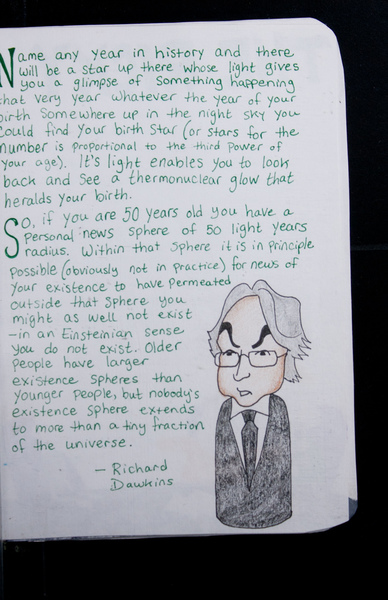 Name any year in history and there
will be a star up there whose light gives
you a glimpse of something happening
that very year whatever the year of your
birth Somewhere up in the night sky you
could find your birth star (or stars for the
number is proportional to the third power of
your age). It's light enables you to look
back and see a thermonuclear glow that
heralds your birth.
So, if you are 50 years old you have a
personal news sphere of 50 light years
radius. Within that sphere it is in principle
possible (obviously not in practice) for news of
your existence to have permeated
outside that sphere you
might as well not exist
-in an Einsteinian sense
you do not exist. Older
people have larger
existence spheres than
younger people, but nobody's
existence sphere extends
to more than a tiny fraction
of the universe.
- Richard
Dawkins